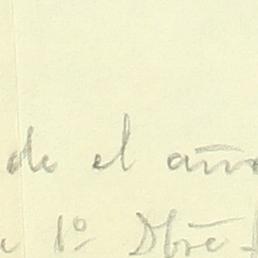 de el año
e 1º Dbre-